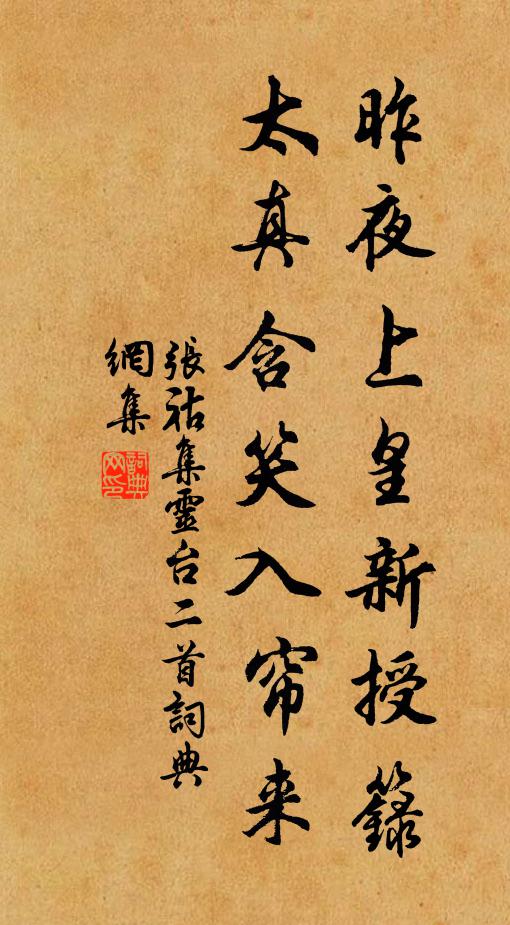 昨夜上皇新授籙
太真含笑入帘来
張祜集靈台二首詞典
網集
詞典
网印